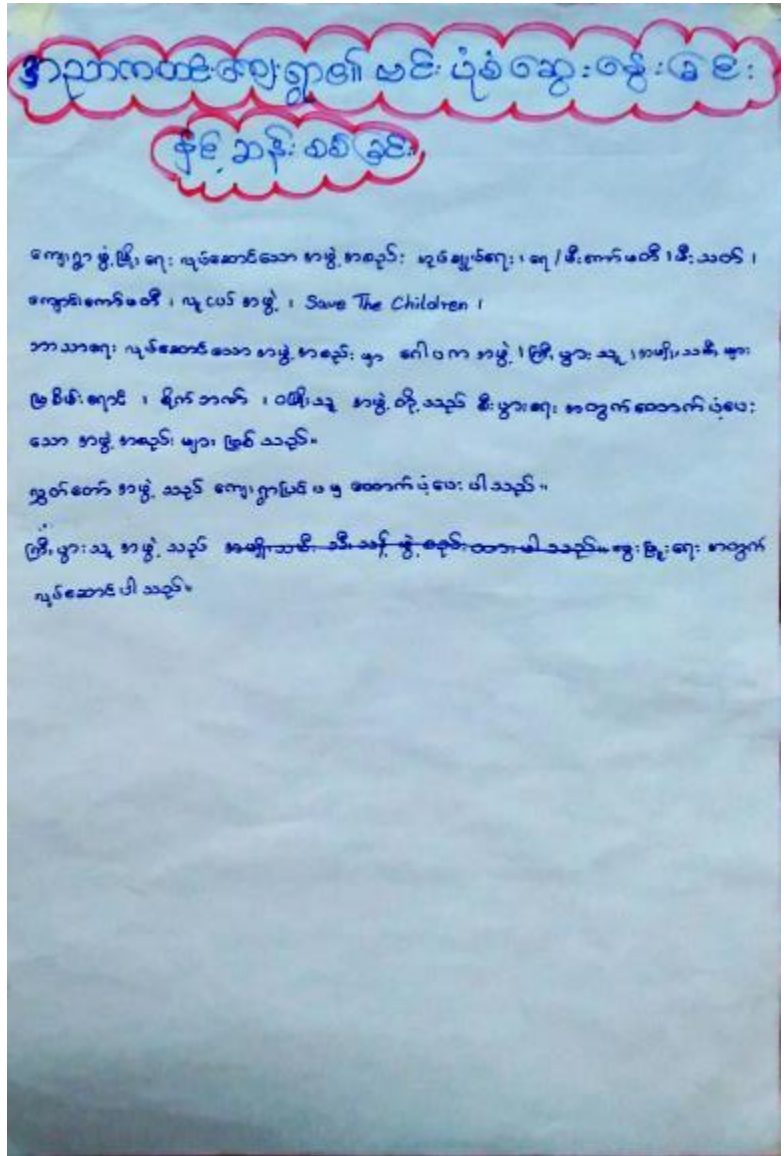 အညာကထင်းကျေးရွာ၏ ဗင်းပုံစံဆွေးနွေးခြင်း
နှင့် ဆန်းစစ်ခြင်း
ကျေးရွာ ဖွံ့ဖြိုးရေး လုပ်ဆောင်သော အဖွဲ့အစည်း အုပ်ချုပ်ရေး ၊ ရေ/မီးကော်မတီ ၊ မီးသတ် ၊
ကျောင်းကော်မတီ ၊ လူငယ် အဖွဲ့ ၊ Save The Children ၊
ဘာသာရေး လုပ်ဆောင်သော အဖွဲ့အစည်း မှာ ဂေါပက အဖွဲ့ ၊ ကြီးပွားသူ ၊ အမျိုးသမီးများ
မြစိမ်းရောင် ၊ ရိုက်ဘဏ် ၊ ဝမြိုသူ အဖွဲ့ တို့သည် စီးပွားရေး အတွက် ထောက်ပံ့ပေး
သော အဖွဲ့အစည်း များ ဖြစ် သည်။
လွှတ်တော် အဖွဲ့ သည် ကျေးရွာပြင်ပမှ ထောက်ပံ့ပေး ပါသည်။
ကြီးပွားသူ အဖွဲ့ သည် အမျိုးသမီး သီးသန့် ဖွဲ့စည်း ထားပါသည်။ မွေးမြူရေး အတွက်
လုပ်ဆောင်ပါသည်။